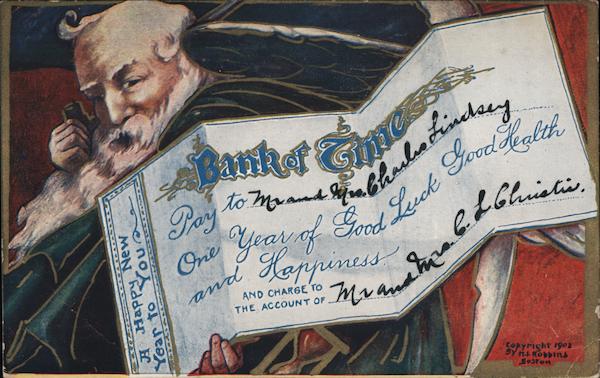 Bank of Time
Pay to Mr and Mrs. Charles Lindsey
One Year of Good Luck Good Health
and Happiness
AND CHARGE TO
THE ACCOUNT OF Mr and Mrs. C. L Christie.
A Happy New
Year to You
Copyright 1908
By H.I. Robbins
Boston